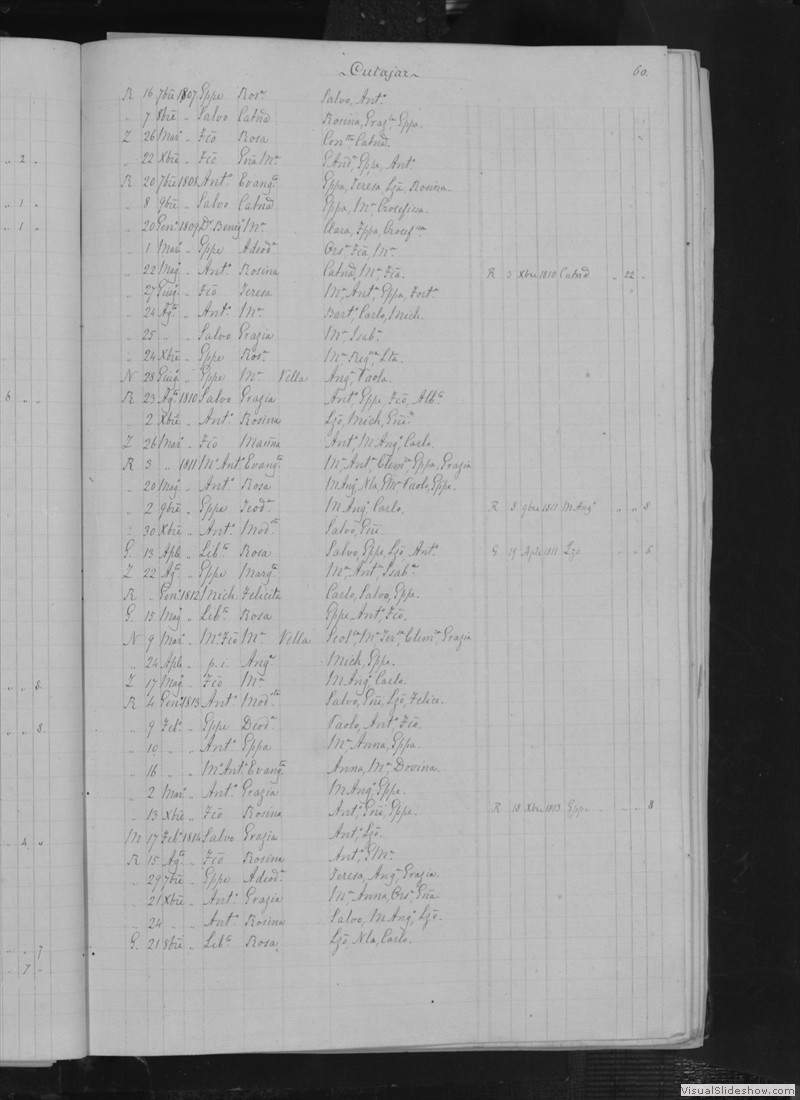 ~Cutajar~ 60.
R 16 7bre 1807 Gppe Rosa Salvo, Anto.
" 7 8bre " Salvo Catnd Rosina, Grazia, Gppa.
Z 26 Mar " Fco Rosa Conta Catnd.
" 22 Xbre " Fco Gna Ma Gppa, Ant.
R 20 7bre 1808 Anto Evanga Gppa, Teresa, Lzo, Rosina.
" 8 9bre " Salvo Catnd Gppa, Ma Crocifissa.
" 20 Geno 1809 Ma Clara, Gppa, Crocifma
" 1 Mar " Gppe Adeoda Orsa, Fca, Ma.
" 22 Mag " Anto Rosina Catnd, Ma, Fca. R 3 Xbre 1810 Catnd " 22 "
" 27 Giug " Fco Teresa Ma, Anta, Gppa, Forta.
" 24 Ago " Anto Ma Barto, Carlo, Mich.
" 25 " " Salvo Grazia Ma, Isaba.
" 24 Xbre " Gppe Rosa Ma Rega, Lta.
N 28 Giug " Gppe Ma Vella Anga, Paola.
R 23 Ago 1810 Salvo Grazia Anto, Gppe, Fco, Albo.
" 2 Xbre " Anto Rosina Lzo, Mich, Gne.
Z 26 Mar " Fco Marina Anto, M Ang, Carlo.
R 3 " 1811 Mo Anto Evanga Ma, Anta, Clema, Gppa, Grazia
" 20 Mag " Anto Rosa M Ang, Nla, Paolo, Gppe.
" 2 9bre " Gppe Teoda M Ang, Carlo. R 3 9bre 1811 M Ang " " 8
" 30 Xbre " Anto Moda Salvo, Gne.
G. 13 Aple " Liba Rosa Salvo, Gppe, Lzo, Anto. G 19 Aple 1811 Lzo " " 5
Z 22 Ago " Gppe Marga Ma, Anta, Isaba.
R " Geno 1812 Mich Felicita Carlo, Salvo, Gppe.
G. 15 Mag " Liba Rosa Gppe, Anto, Fco.
N 9 Mar " Mo Fco Ma Vella Scola, Ma, Tera, Clema, Grazia
" 24 Aple " p.i. Anga Mich, Gppe.
Z 17 Mag " Fco Ma M Ang, Carlo.
R 4 Geno 1813 Anto Moda Salvo, Gne, Lzo, Felice.
" 9 Febo " Gppe Deoda Paolo, Anto, Fco.
" 10 " " Anto Gppa Ma, Anna, Gppa.
" 16 " " Mo Anto Evanga Anna, Ma, Dovina.
" 2 Mar " Anto Grazia M Ang, Gppe.
" 13 Xbre " Fco Rosina Anto, Gne, Gppe. R 18 Xbre 1813 Gppe " " 8
M 17 Febo 1814 Salvo Grazia Anto, Lzo.
R 15 Ago " Fco Rosina Anto, G Ma.
" 29 7bre " Gppe Adeoda Teresa, Anga, Grazia.
" 21 Xbre " Anto Grazia Ma, Anna, Orsa, Gna
" 24 " " Anto Rosina Salvo, M Ang, Lzo.
G. 21 8bre " Liba Rosa Lzo, Nla, Carlo.
VisualSlideshow.com